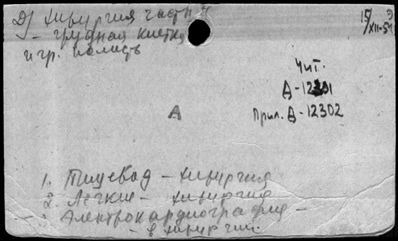 Д) хирургия частн
- грудная клетка
и гр. полость
15/
XII-54
Чит.
Д-12301
Прил. Д-12302
А
1. Пищевод - хирургия
2. Лёгкие - хирургия
3. Электрокардиография -
- в хирургии.